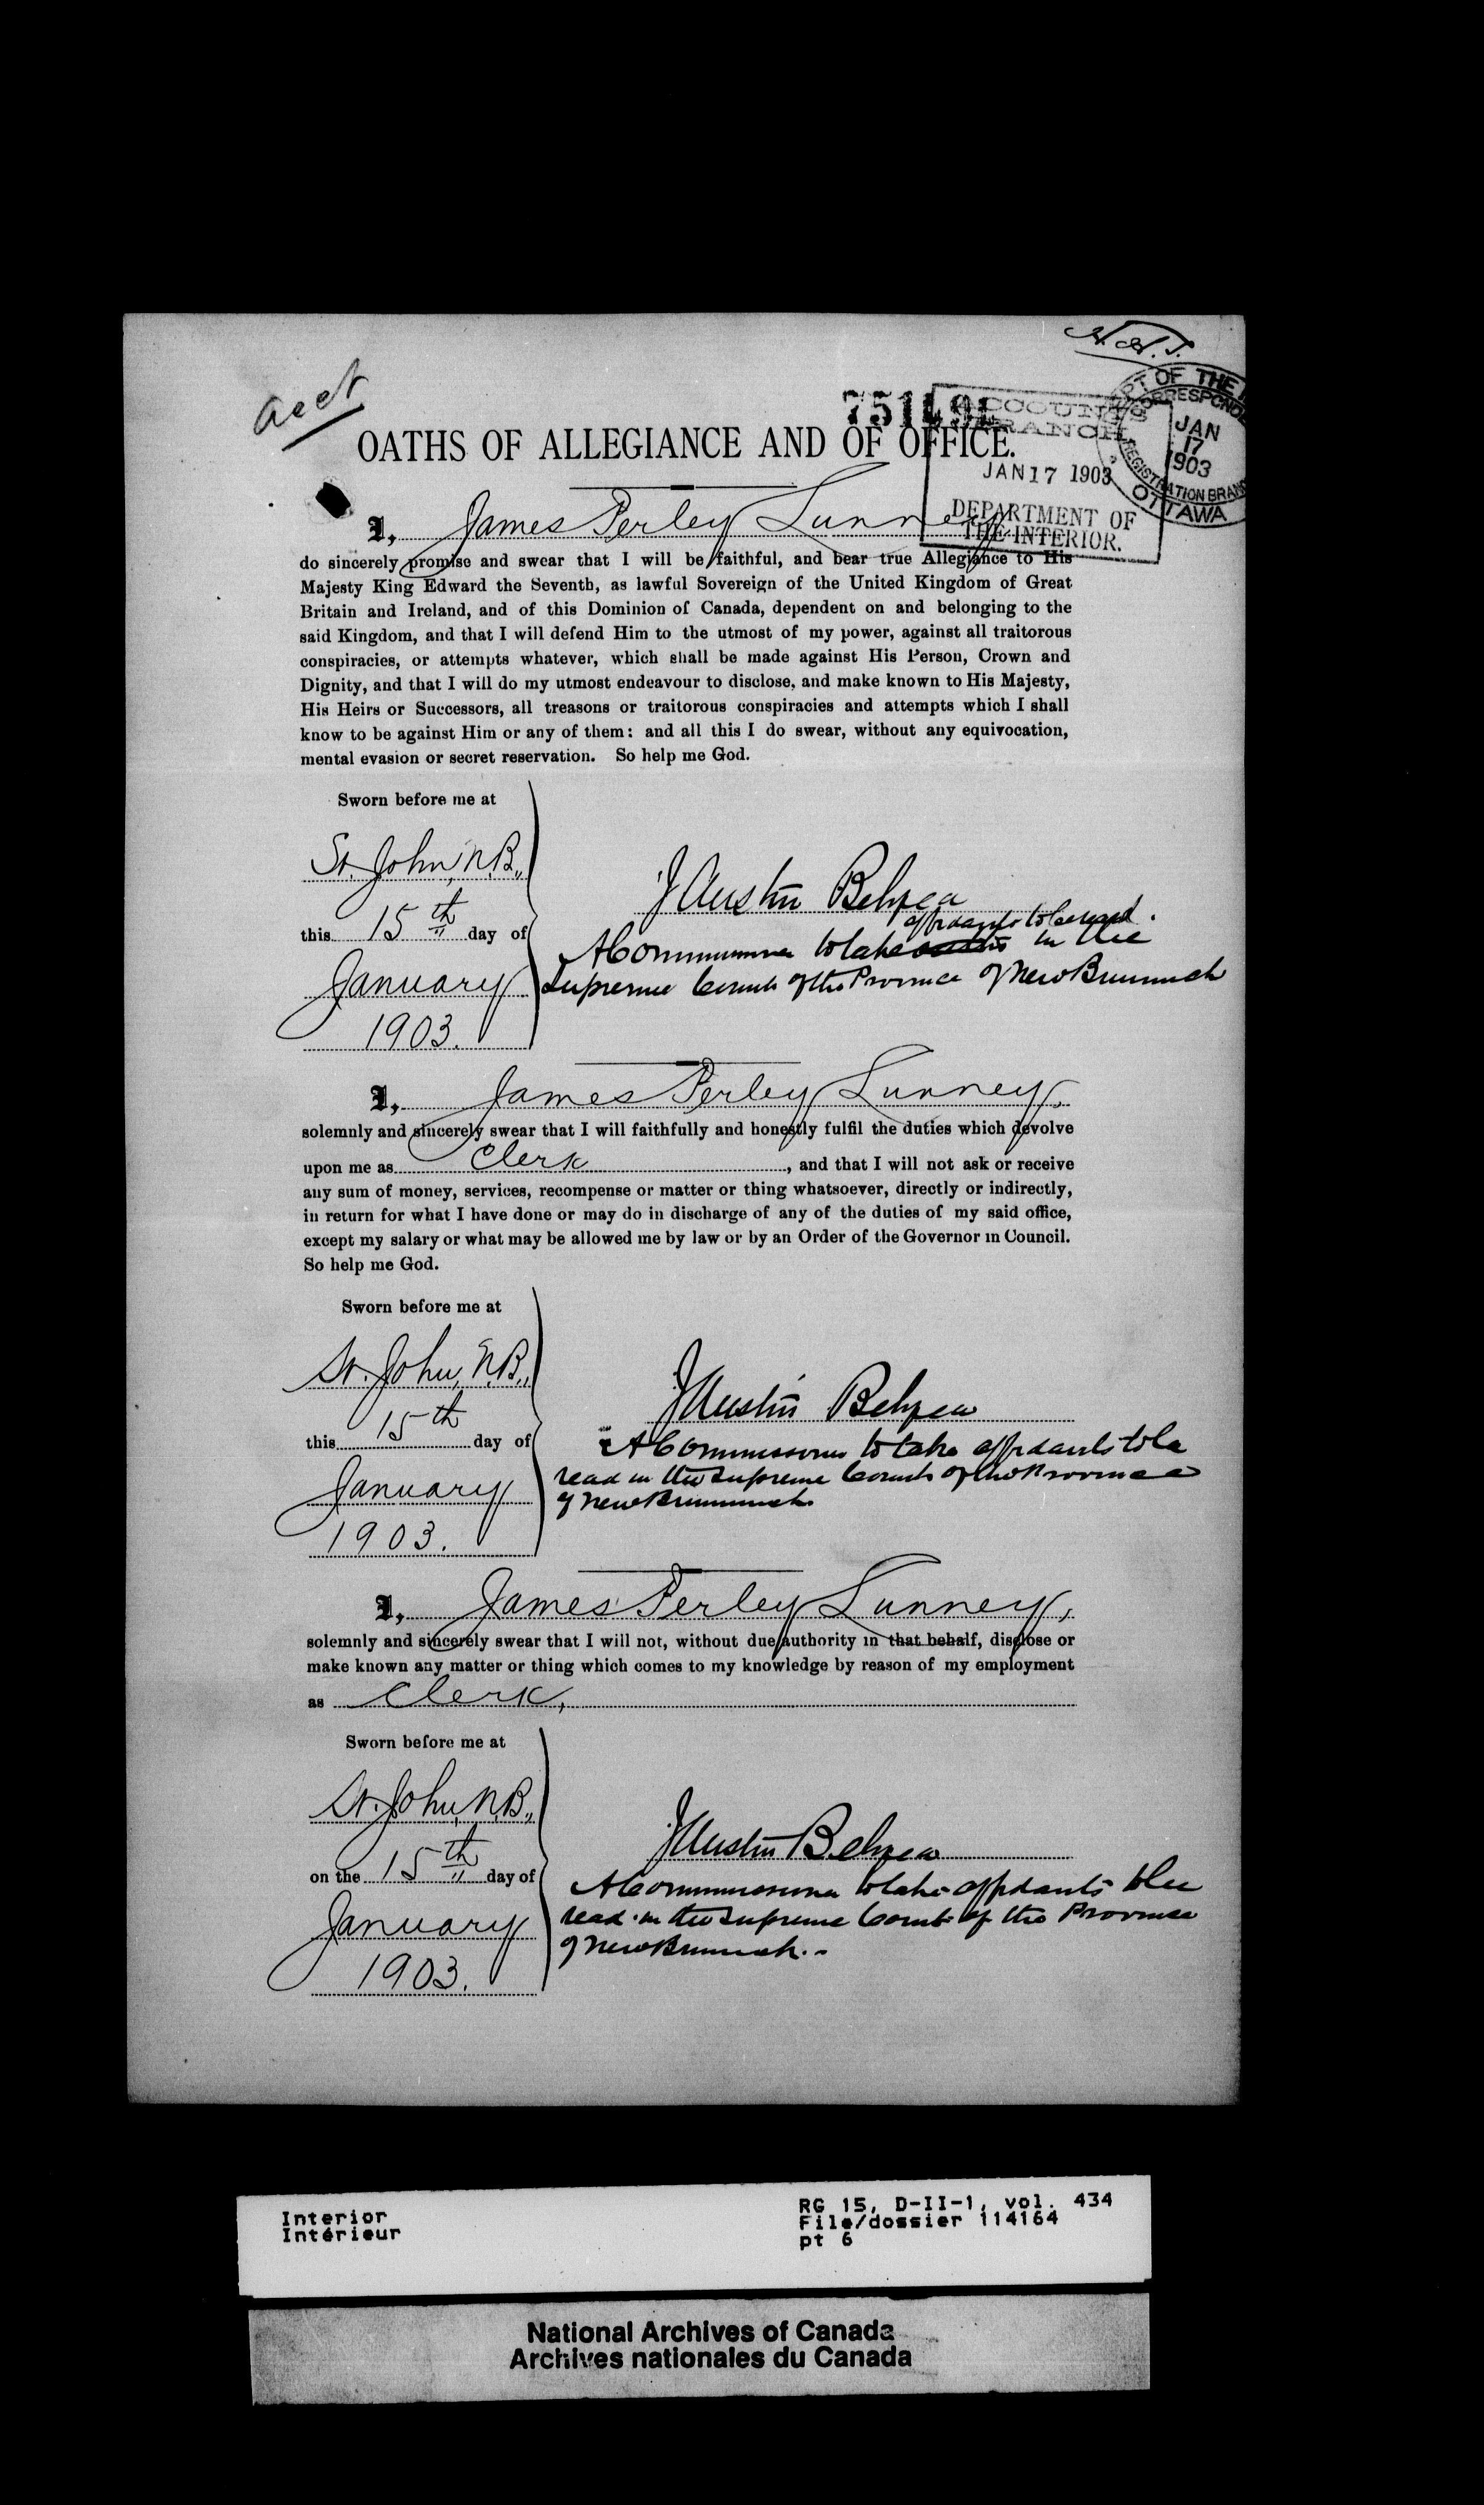 acct
751491
ACCOUNTS
BRANCH
JAN 17 1903
DEPARTMENT OF
THE INTERIOR.
JAN
17
1903
REGISTRATION BRAN
OTTAWA
OATHS OF ALLEGIANCE AND OF OFFICE.
I, James Perley Lunney,
do sincerely promise and swear that I will be faithful, and bear true Allegiance to His
Majesty King Edward the Seventh, as lawful Sovereign of the United Kingdom of Great
Britain and Ireland, and of this Dominion of Canada, dependent on and belonging to the
said Kingdom, and that I will defend Him to the utmost of my power, against all traitorous
conspiracies, or attempts whatever, which shall be made against His Person, Crown and
Dignity, and that I will do my utmost endeavour to disclose, and make known to His Majesty,
His Heirs or Successors, all treasons or traitorous conspiracies and attempts which I shall
know to be against Him or any of them: and all this I do swear, without any equivocation,
mental evasion or secret reservation. So help me God.
Sworn before me at
St. John, N.B.,
this 15th day of
January
1903.
J Austin Belyea
affidavits to be read
A Commissioner to take in the
Supreme Court of the Province of New Brunswick
I, James Perley Lunney,
solemnly and sincerely swear that I will faithfully and honestly fulfil the duties which devolve
upon me as Clerk, and that I will not ask or receive
any sum of money, services, recompense or matter or thing whatsoever, directly or indirectly,
in return for what I have done or may do in discharge of any of the duties of my said office,
except my salary or what may be allowed me by law or by an Order of the Governor in Council.
So help me God.
Sworn before me at
St. John, N.B.,
this 15th day of
January
1903.
J Austin Belyea
A Commissioner to take affidavits to be
read in the Supreme Court of the Province
of New Brunswick.
I, James Perley Lunney,
solemnly and sincerely swear that I will not, without due authority in that behalf, disclose or
make known any matter or thing which comes to my knowledge by reason of my employment
as Clerk,
Sworn before me at
St. John, N.B.,
on the 15th day of
January
1903.
J Austin Belyea
A Commissioner to take affidavits to be
read in the Supreme Court of the Province
of New Brunswick.
Interior
Intérieur
RG 15, D-II-1, vol. 434
File/dossier 114164
pt 6
National Archives of Canada
Archives nationales du Canada